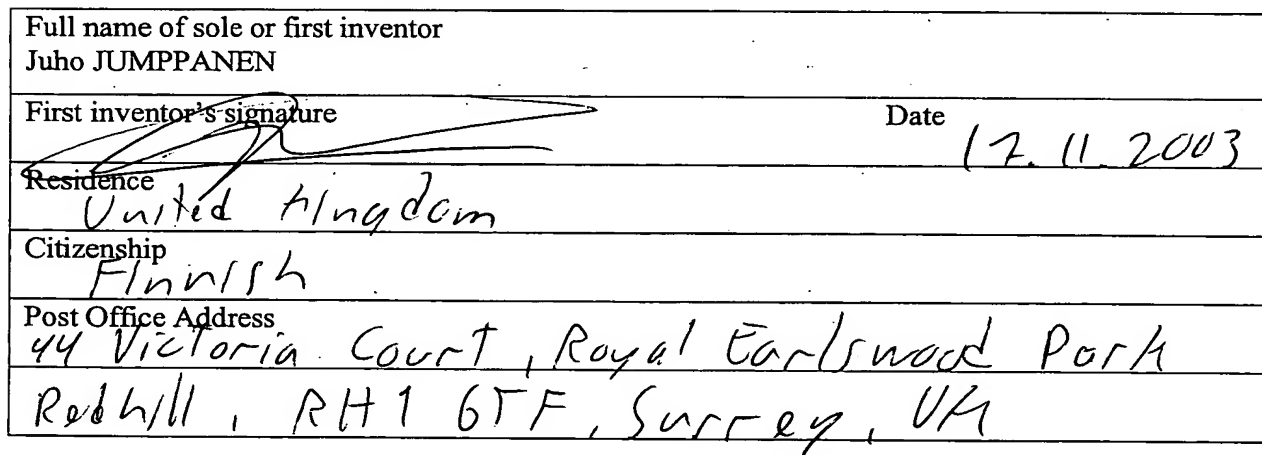 Full name of sole or first inventor
Juho JUMPPANEN
First inventor's signature Date
17.11.2003
Residence
United Kingdom
Citizenship
Finnish
Post Office Address
44 Victoria Court, Royal Earlswood Park
Redhill, RH1 6TF, Surrey, UK